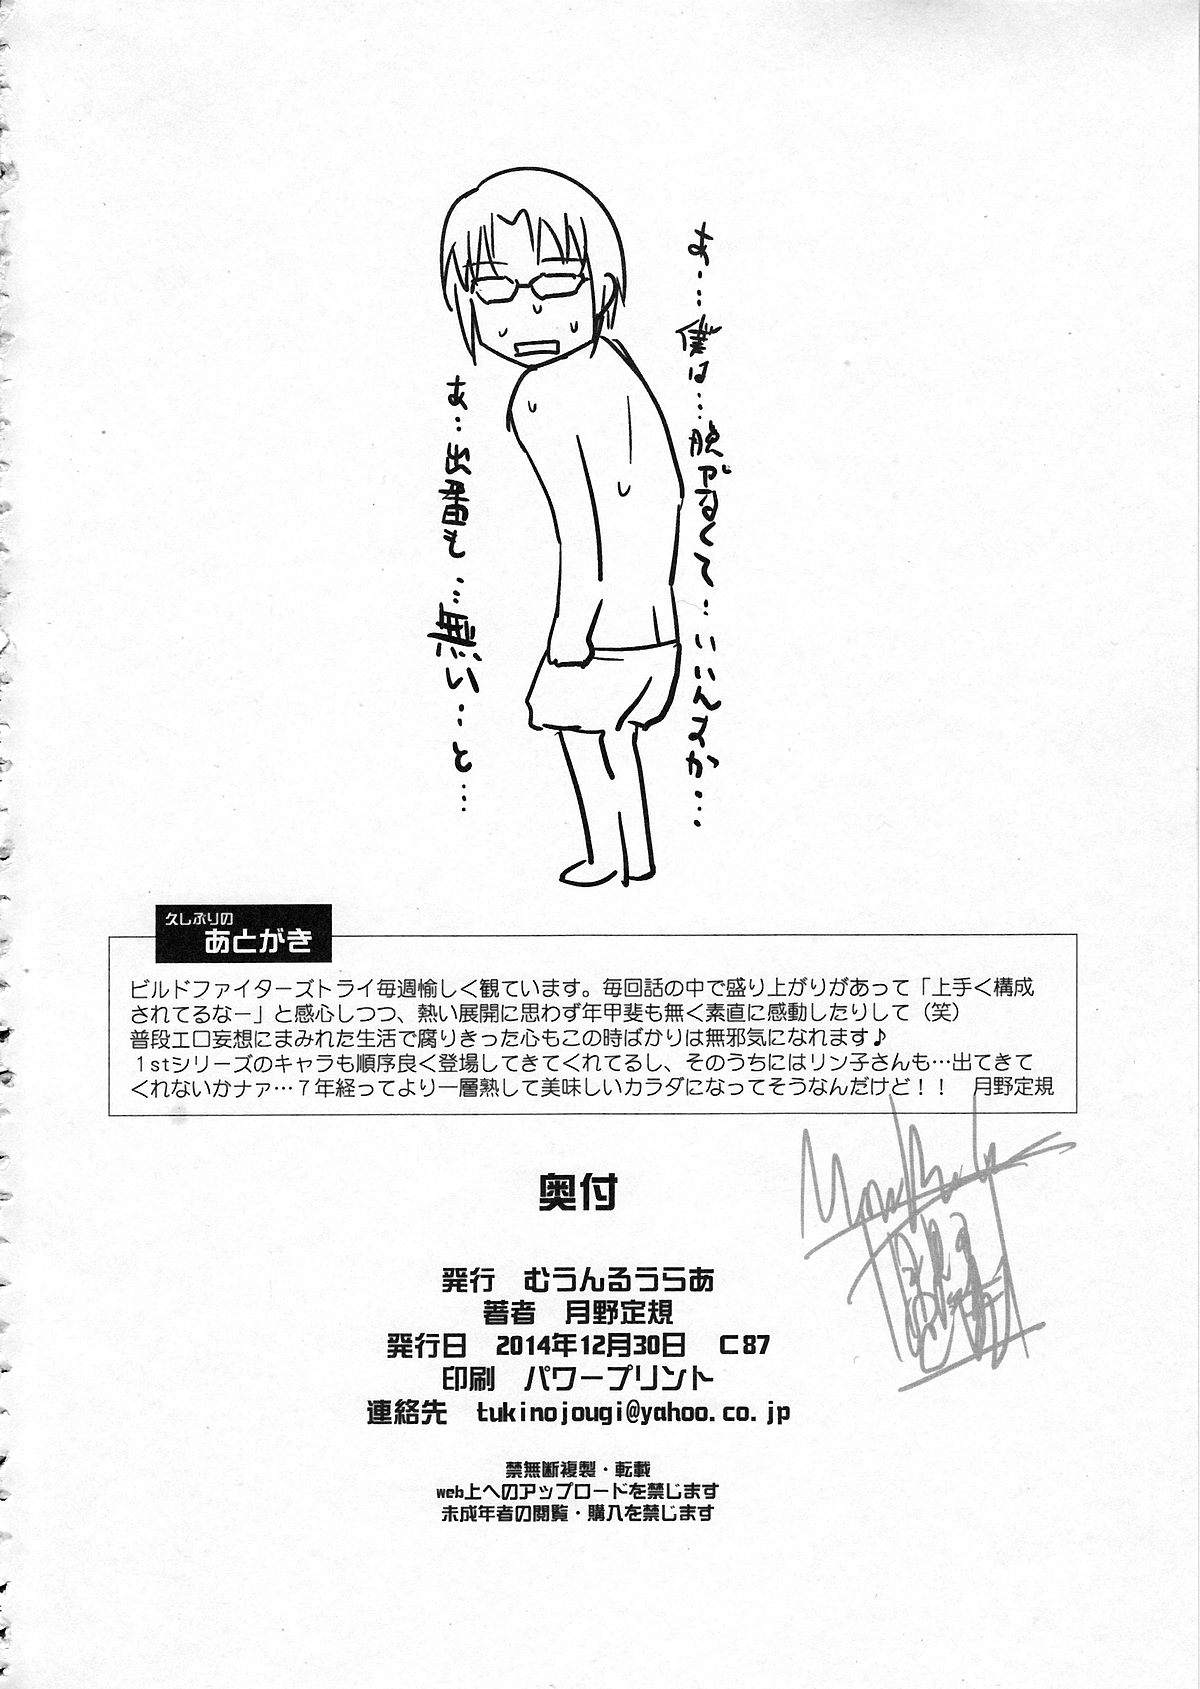 あ…僕は…脱がなくて…いいんすか…
あ…出番も…無い…と…
久しぶりの
あとがき
ビルドファイターズトライ毎週愉しく観ています。毎回話の中で盛り上がりがあって「上手く構成
されてるなー」と感心しつつ、熱い展開に思わず年甲斐も無く素直に感動したりして（笑）
普段エロ妄想にまみれた生活で腐りきった心もこの時ばかりは無邪気になれます♪
１stシリーズのキャラも順序良く登場してきてくれてるし、そのうちにはリン子さんも…出てきて
くれないかナァ…７年経ってより一層熟して美味しいカラダになってそうなんだけど！！　月野定規
奥付
発行　むうんるうらあ
著者　月野定規
発行日　2014年12月30日　C87
印刷　パワープリント
連絡先　tukinojougi@yahoo.co.jp
禁無断複製・転載
web上へのアップロードを禁じます
未成年者の閲覧・購入を禁じます